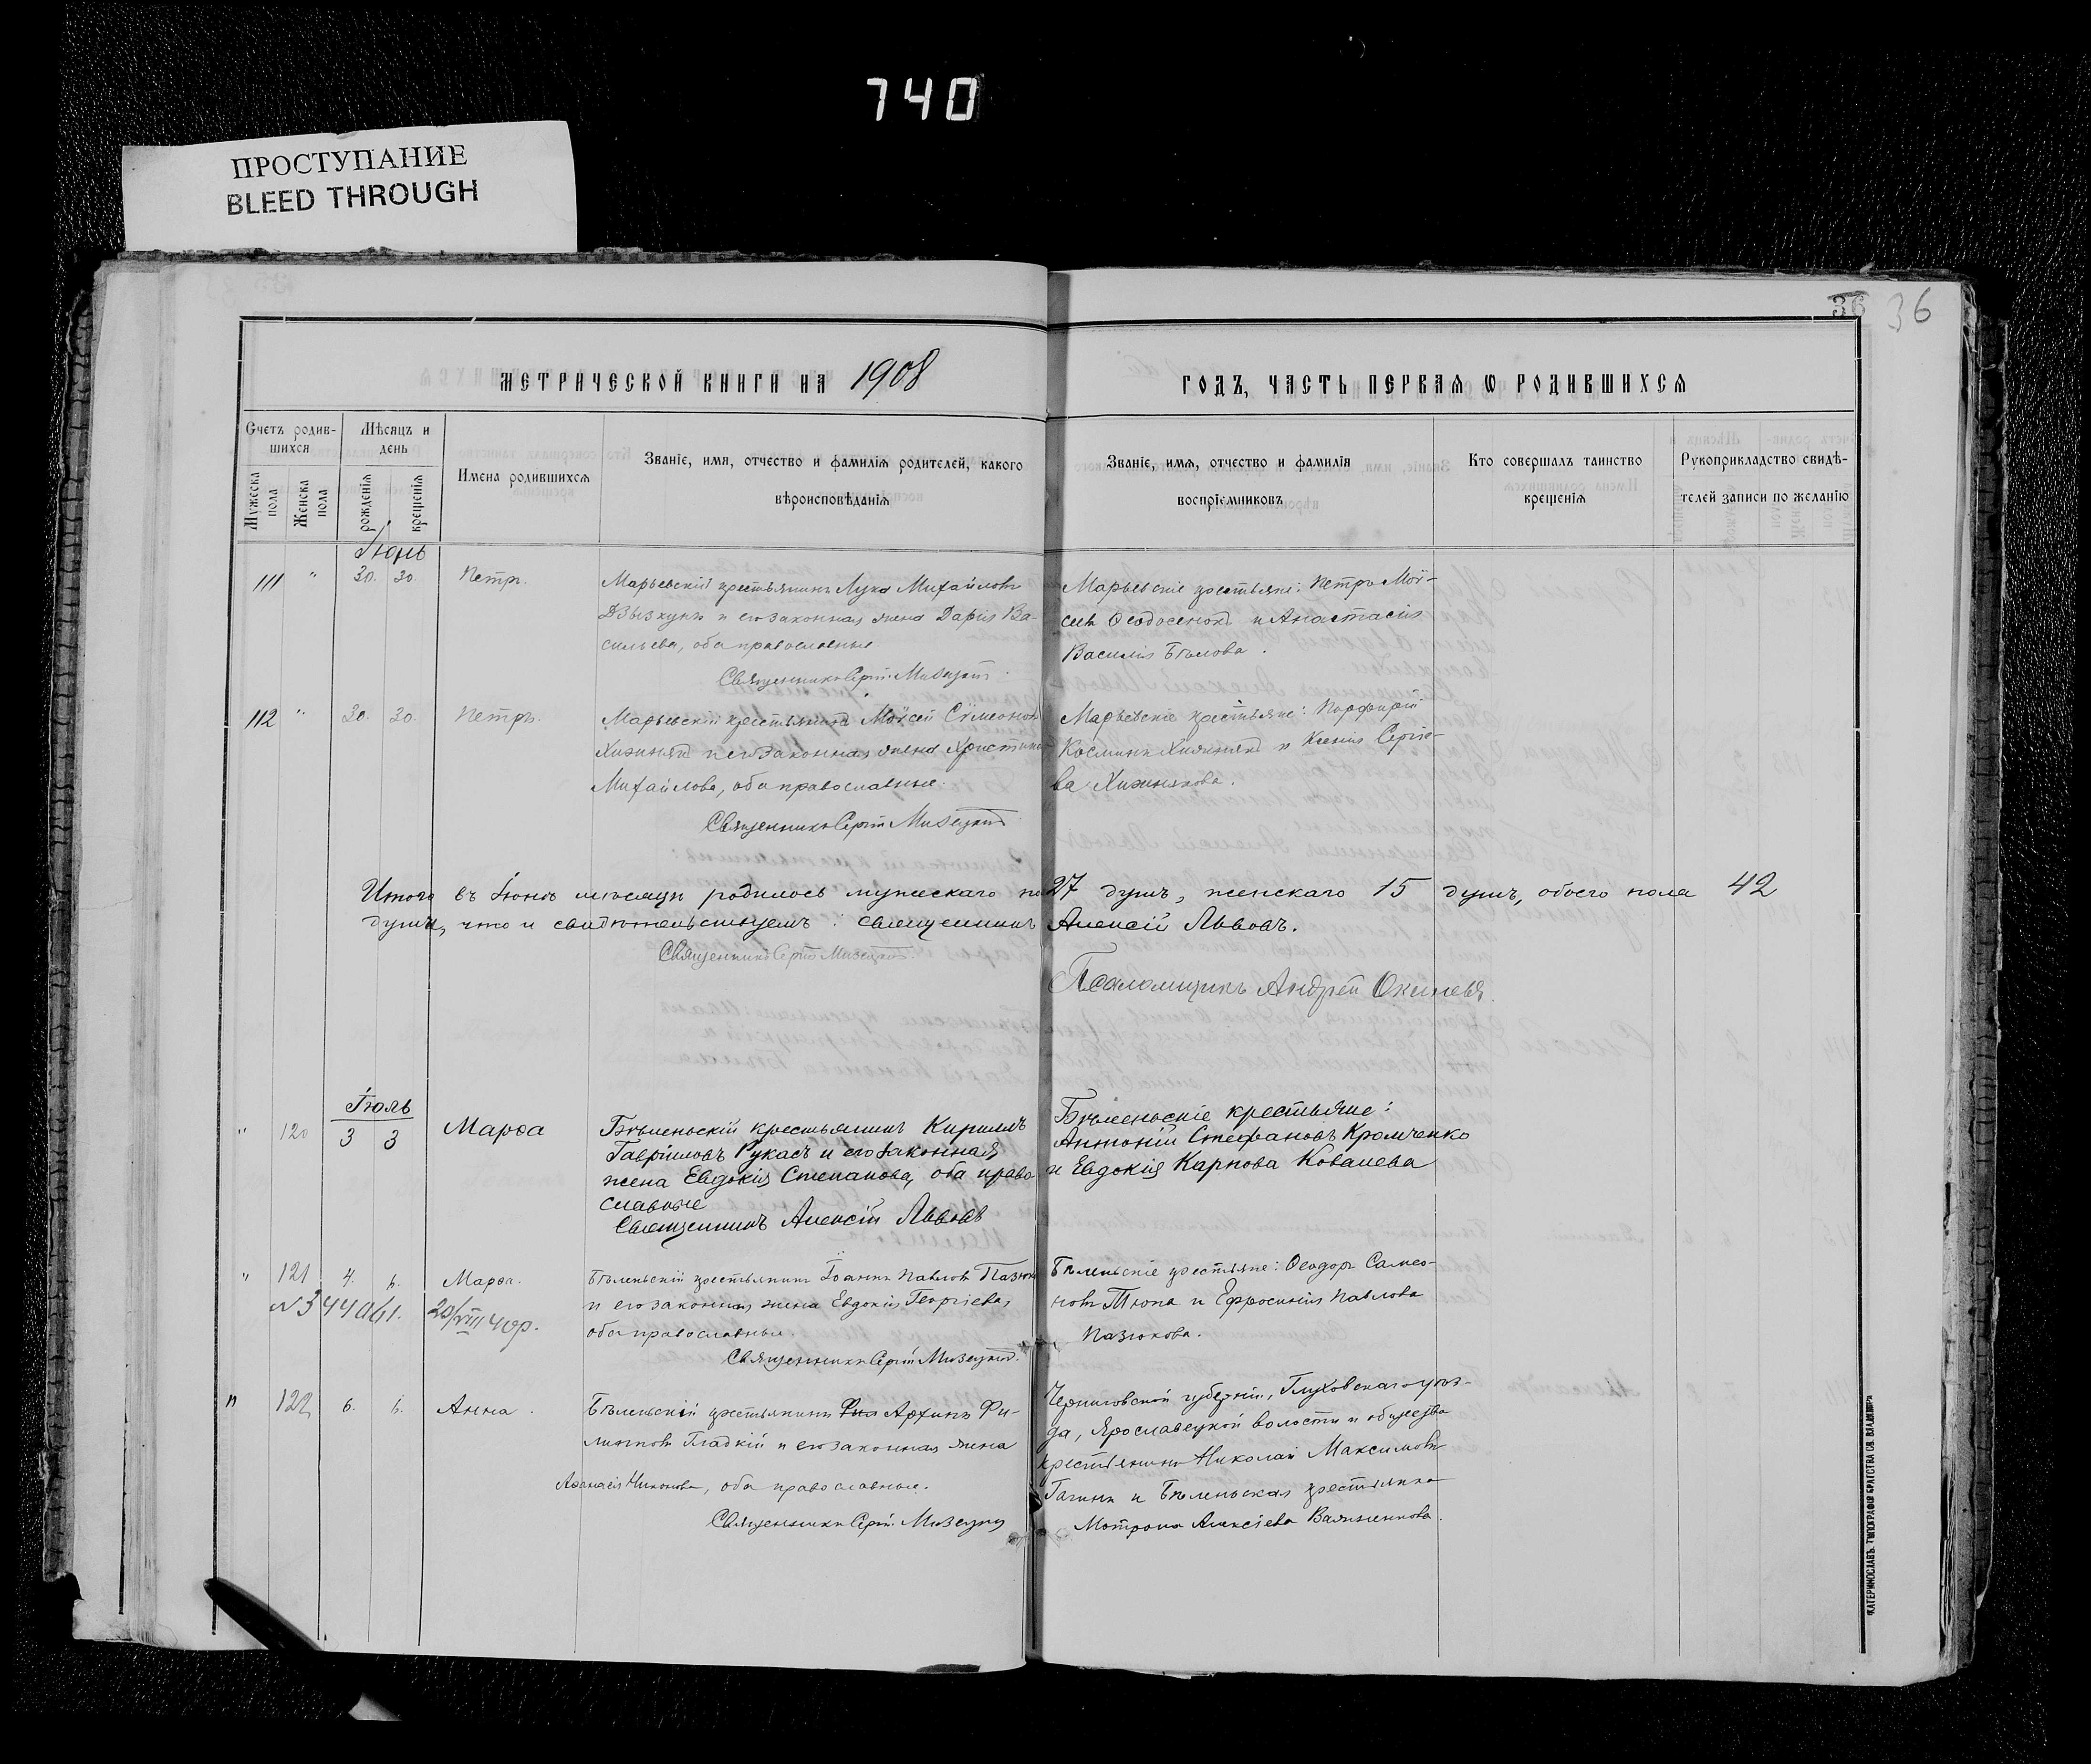 740
ПРОСТУПАНИЕ
BLEED THROUGH
36 36
МЕТРИЧЕСКОЙ КНИГИ НА 1908
ГОДЪ, ЧАСТЬ ПЕРВАЯ Ѡ РОДИВШИХСЯ
Счетъ родив-
шихся
Мужеска пола
Женска пола
Мѣсяцъ и
день
рожденія
крещенія
Имена родившихся
Званіе, имя, отчество и фамилія родителей, какого
вѣроисповѣданія
Званіе, имя, отчество и фамилія
воспріемниковъ
Кто совершалъ таинство
крещенія
Рукоприкладство свидѣ-
телей записи по желанію
Іюнь
111 " 30. 30. Петръ.
Марьевскій крестьянинъ Лука Михайловъ
Дзызкунъ и его законная жена Дарія Ва-
сильева, оба православные
Священникъ Сергій Мизецкій
Марьевскіе крестьяне: Петръ Мої-
сеевъ Ѳеодосенко и Анастасія
Василія Бѣлова.
112 " 30. 30. Петръ.
Марьевскій крестьянинъ Моѵсей Сѵмеоновъ
Хижнякъ и его законная жена Христина
Михайлова, оба православные.
Священникъ Сергій Мизецкій
Марьевскіе крестьяне: Порфирій
Косминъ Хижнякъ и Ксенія Сергіе-
ва Хижнякова.
Итого въ Іюнѣ мѣсяцѣ родилось мужескаго по 27 душъ, женскаго 15 душъ, обоего пола 42
души, что и свидѣтельствуемъ: священникъ Алексій Львовъ.
Священникъ Сергій Мизецкій.
Псаломщикъ Андрей Окиневъ.
Іюль
" 120 3 3 Марѳа
Бѣленьскій крестьянинъ Кириллъ
Гавріиловъ Рукасъ и его законная
жена Евдокія Степанова, оба право
славные
Священникъ Алексій Львовъ
Бѣленьскіе крестьяне:
Антоній Стефановъ Кромченко
и Евдокія Карпова Ковалева
" 121 4. 6. Марѳа.
№ 344061. 20/VIII 40р.
Бѣленьскій крестьянинъ Іоаннъ Павловъ Пазюк
и его законная жена Евдокія Георгіева,
оба православные.
Священникъ Сергій Мизецкій.
Бѣленьскіе крестьяне: Ѳеодоръ Самсо-
новъ Тюпа и Ефросинія Павлова
Пазюкова.
" 122 6. 6. Анна.
Бѣленьскій крестьянинъ Архипъ Фи-
липповъ Гладкій и его законная жена
Аѳанасія Никонова, оба православные.
Священникъ Сергій Мизецкій
Черниговской губерніи, Глуховскаго уѣз-
да, Ярославецкой волости и общества
крестьянинъ Николай Максимовъ
Гагинъ и Бѣленьская крестьянка
Матрона Алексіева Важненкова.
ЕКАТЕРИНОСЛАВЪ. ТИПОГРАФІЯ БРАТСТВА СВ. ВЛАДИМІРА